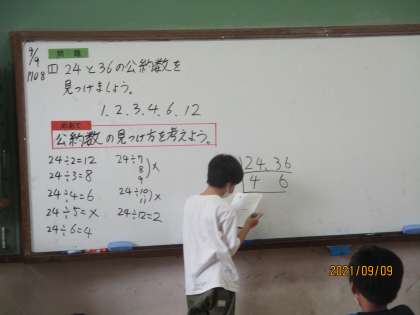 9/9
P108
問題
1 24と36の公約数を
見つけましょう。
1.2.3.4.6.12
めあて
公約数の見つけ方を考えよう。
24÷2=12
24÷3=8
24÷4=6
24÷5=×
24÷6=4
24÷7
8
9
)×
24÷10
11
)×
24÷12=2
24.36
4 6
2021/09/09